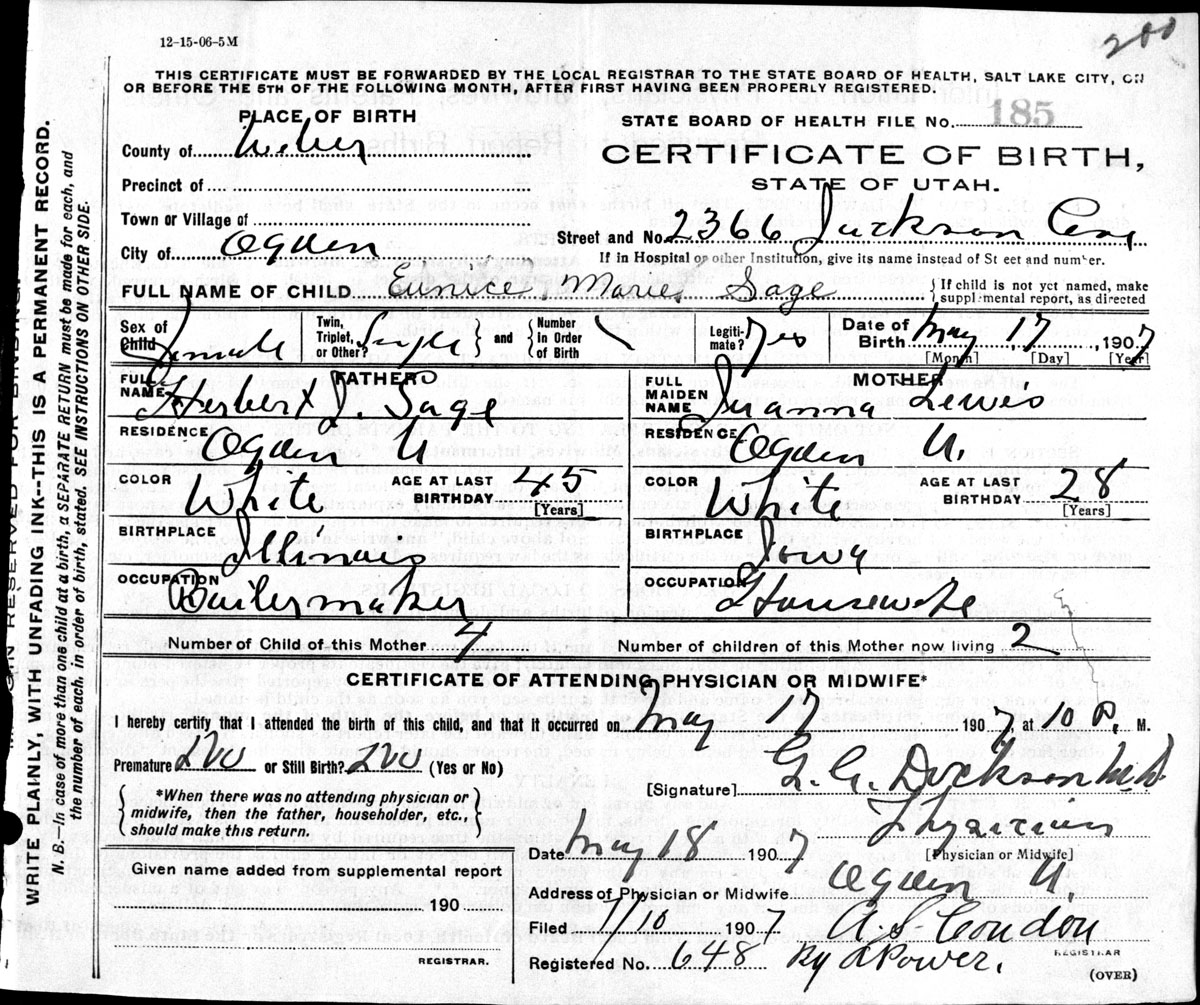 12-15-06-5M
200
THIS CERTIFICATE MUST BE FORWARDED BY THE LOCAL REGISTRAR TO THE STATE BOARD OF HEALTH, SALT LAKE CITY, ON
OR BEFORE THE 5TH OF THE FOLLOWING MONTH, AFTER FIRST HAVING BEEN PROPERLY REGISTERED.
PLACE OF BIRTH
STATE BOARD OF HEALTH FILE No. 185
County of Weber
CERTIFICATE OF BIRTH,
STATE OF UTAH.
Precinct of
Town or Village of
City of Ogden
Street and No. 2366 Jackson Ave
If in Hospital or other Institution, give its name instead of St eet and number.
FULL NAME OF CHILD Eunice Marie Sage { If child is not yet named, make
suppl-mental report, as directed
Sex of Child Female
Twin, Triplet, or Other? Single } and { Number In Order of Birth
Legiti-mate? Yes
Date of Birth May 17, 1907
[Month] [Day] [Year]
FATHER
FULL NAME Herbert J. Sage
RESIDENCE Ogden U
COLOR White AGE AT LAST BIRTHDAY 45
[Years]
BIRTHPLACE Illinois
OCCUPATION Boilermaker
MOTHER
FULL MAIDEN NAME Juanna Lewis
RESIDENCE Ogden U.
COLOR White AGE AT LAST BIRTHDAY 28
[Years]
BIRTHPLACE Iowa
OCCUPATION Housewife
Number of Child of this Mother 4
Number of children of this Mother now living 2
CERTIFICATE OF ATTENDING PHYSICIAN OR MIDWIFE*
I hereby certify that I attended the birth of this child, and that it occurred on May 17 1907, at 10 P. M.
Premature? No or Still Birth? No (Yes or No)
[Signature] Dickson M.D.
*When there was no attending physician or
midwife, then the father, householder, etc.,
should make this return.
Physician
Date May 18 1907 [Physician or Midwife]
Given name added from supplemental report
190
REGISTRAR.
Address of Physician or Midwife Ogden U
Filed 7/10 1907 A. S. Condon
REGISTRAR
Registered No. 648 By Power.
(OVER)
MARGIN RESERVED FOR BINDING.
WRITE PLAINLY, WITH UNFADING INK--THIS IS A PERMANENT RECORD.
N. B.--In case of more than one child at a birth, a SEPARATE RETURN must be made for each, and
the number of each, in order of birth, stated. SEE INSTRUCTIONS ON OTHER SIDE.